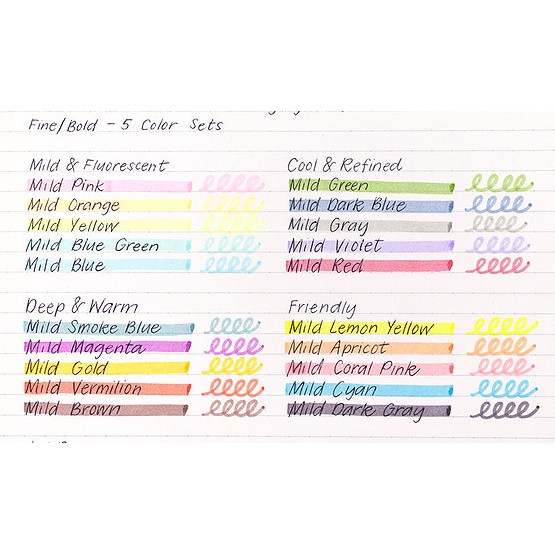 Fine/Bold - 5 Color Sets
Mild & Fluorescent
Mild Pink
Mild Orange
Mild Yellow
Mild Blue Green
Mild Blue
Cool & Refined
Mild Green
Mild Dark Blue
Mild Gray
Mild Violet
Mild Red
Deep & Warm
Mild Smoke Blue
Mild Magenta
Mild Gold
Mild Vermilion
Mild Brown
Friendly
Mild Lemon Yellow
Mild Apricot
Mild Coral Pink
Mild Cyan
Mild Dark Gray